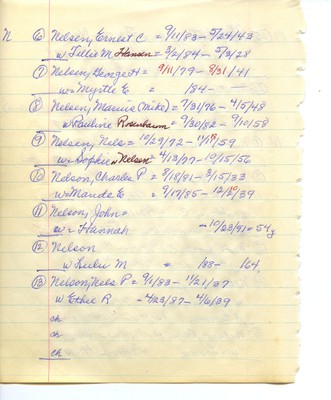 N ⑥ Nelsen, Ernest C = 9/11/83 - 5/24/43
w Lillie M Hansen = 3/2/84 - 5/3/28
⑦ Nelsen, George H = 9/11/79 - 8/31/41
w = Myrtle E = /84 -
⑧ Nelsen, Maurice (Mike) = 7/31/76 - 4/5/48
w Pauline Rosenbaum = 9/30/82 - 9/10/58
⑨ Nelsen, Nels = 10/29/72 - 11/18/59
w = Sophie w Nelsen = 4/13/77 - 10/15/56
⑩ Nelson, Charles P = 8/18/81 - 8/15/33
w = Maude E = 9/17/85 - 12/20/39
⑪ Nelson, John =
w = Hannah - 10/23/91 = 54 y
⑫ Nelson
w Lulu M = /88 - /64
⑬ Nelson, Nels P = 9/1/83 - 11/21/37
w Ethel R - 4/23/87 - 4/6/39
ch
ch
ch